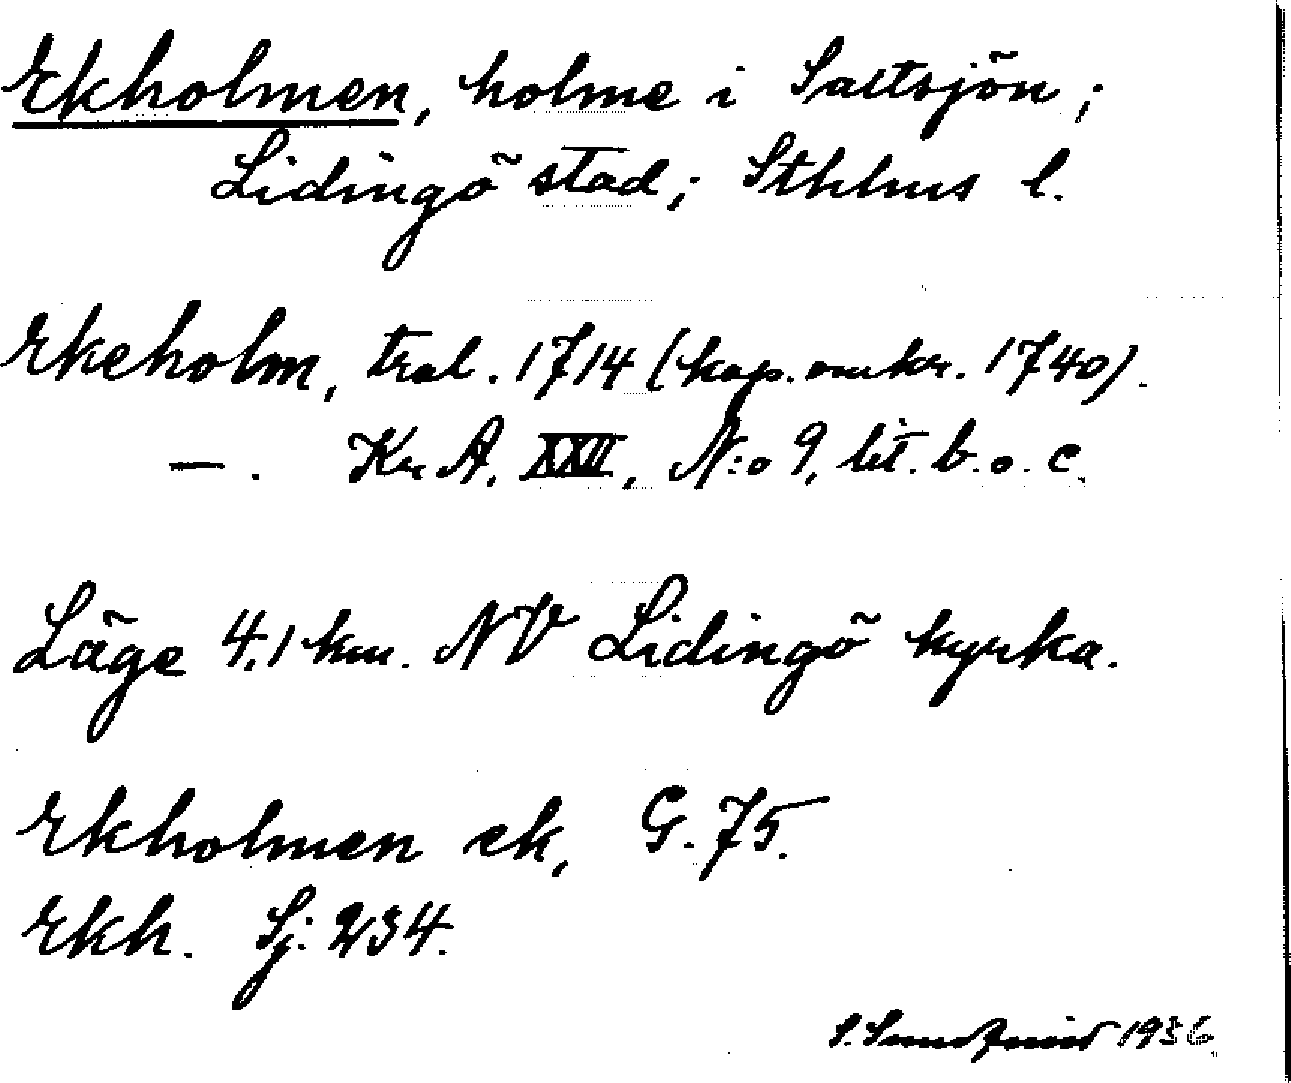 Ekholmen, holme i Saltsjön;
Lidingö stad; Sthlms l.
Ekeholm, tral. 1714 (kop. omkr. 1740).
— . Kr A. XXII, N:o 9, lit. b. o. c.
Läge 4,1 km. NV Lidingö kyrka.
Ekholmen ek, G. 75.
Ekh. Sj. 234.
1936